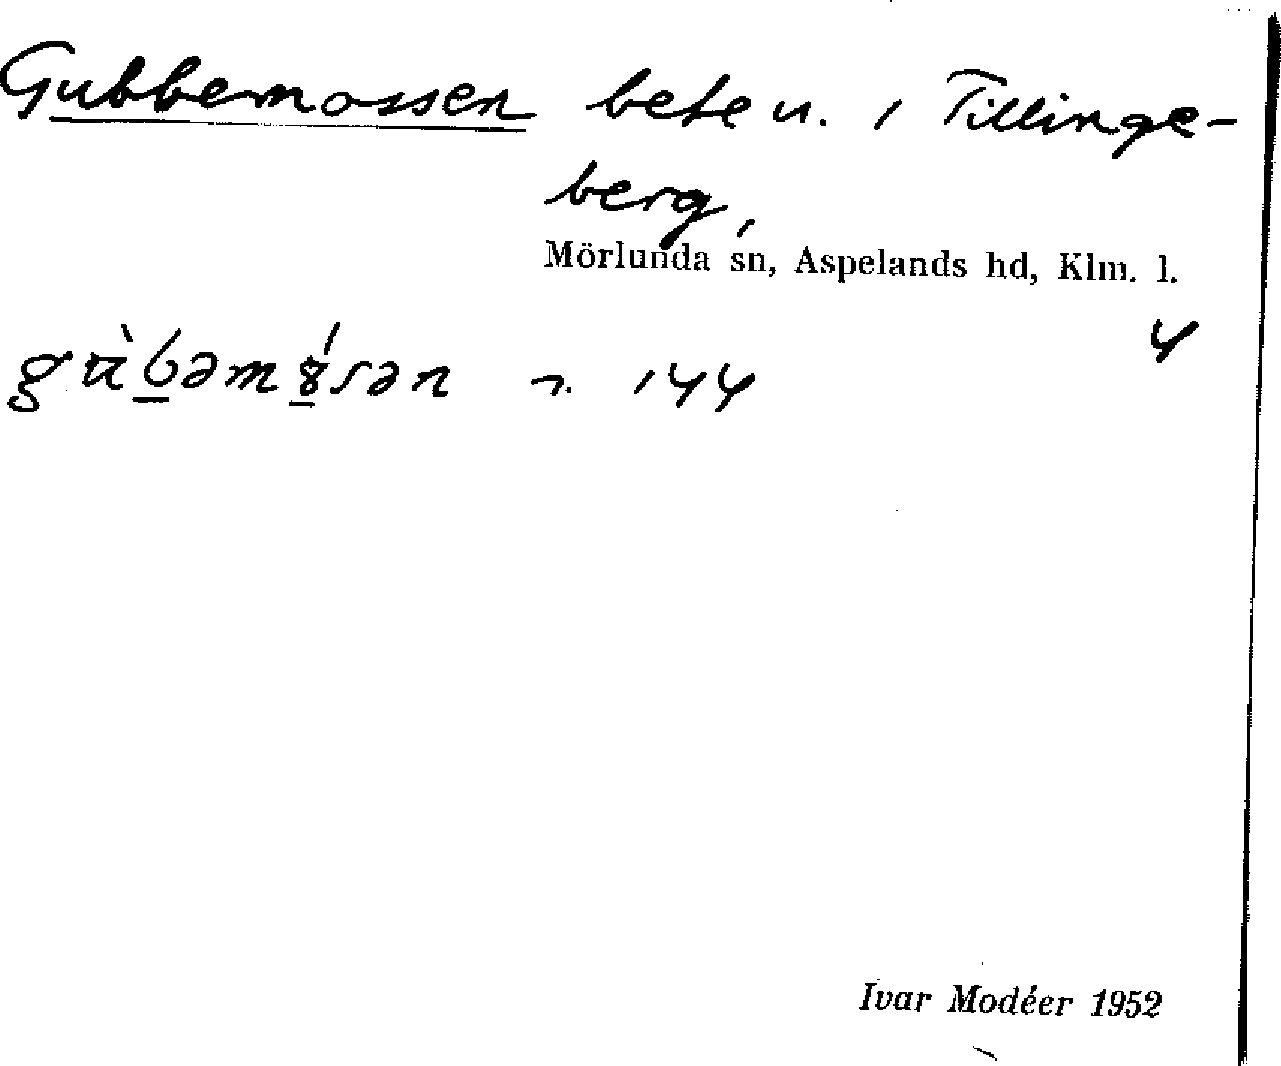 Gubbemossen bete n. i Tillinge-
berg,
Mörlunda sn, Aspelands hd, Klm. l.
4
n. 144
Ivar Modéer 1952